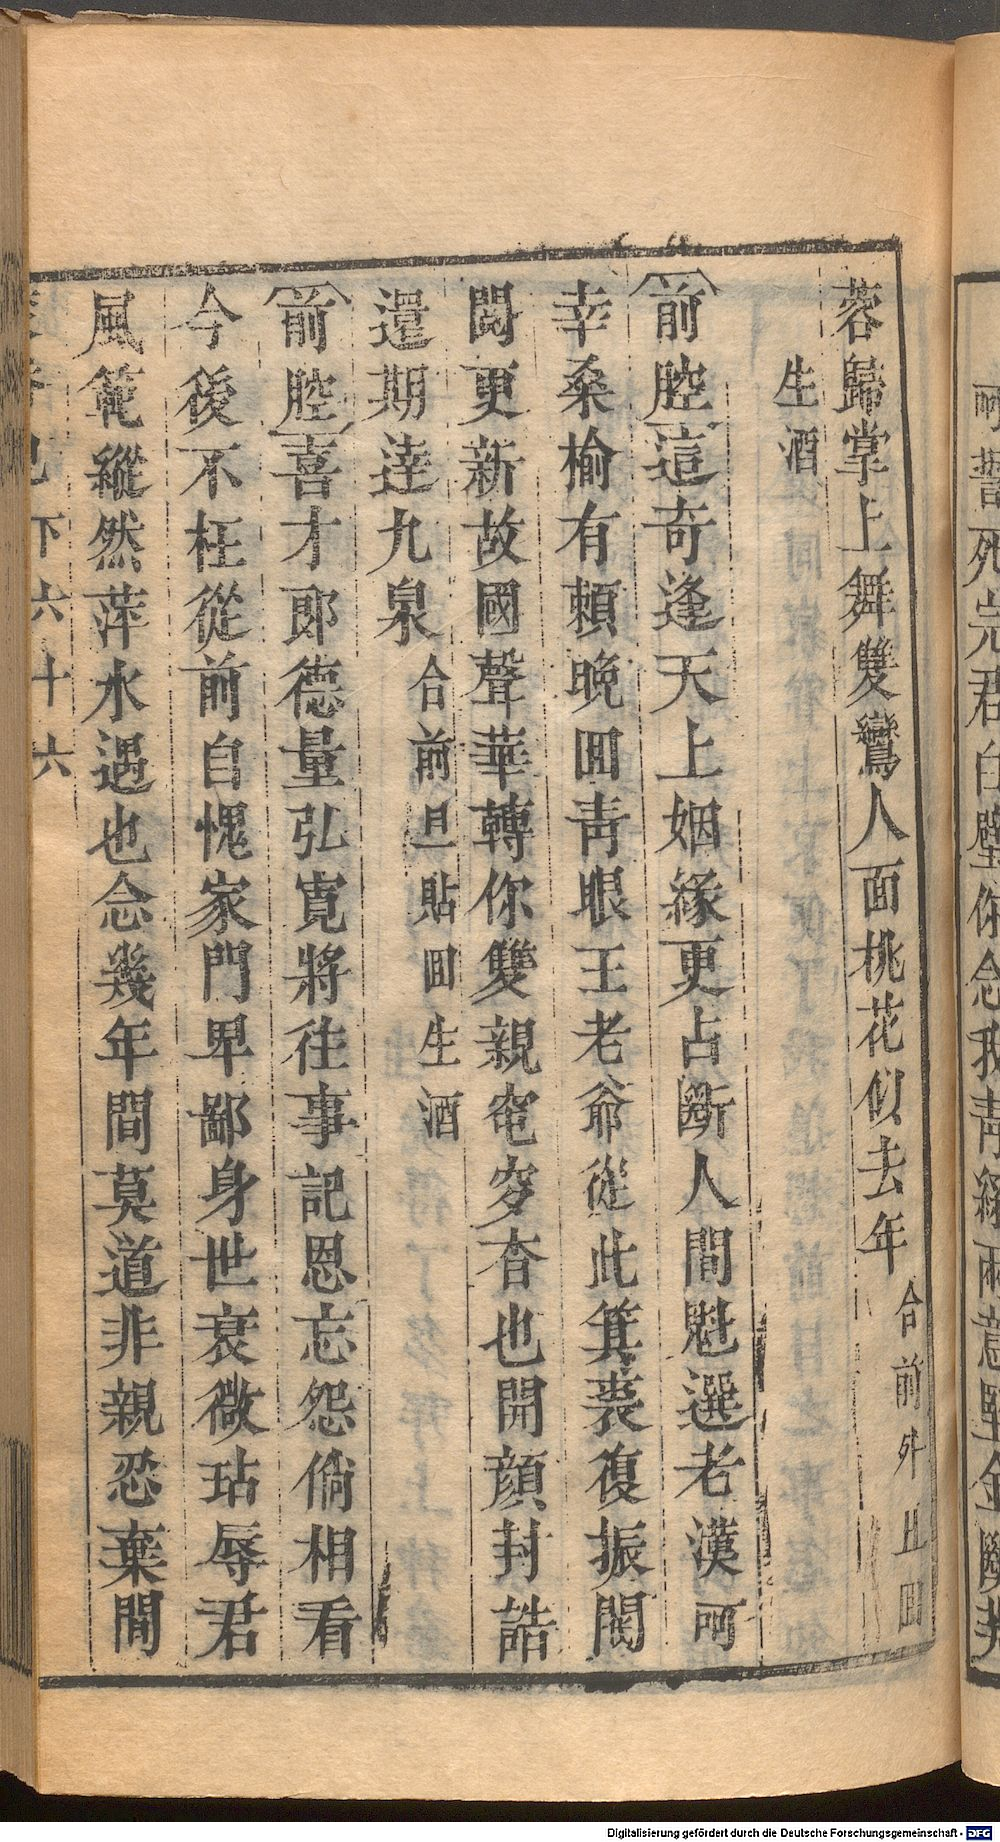 蓉歸掌上舞雙鸞人面桃花似去年合前外旦回
生酒
前腔這奇逢天上姻緣更占斷人間魁選老漢呵
幸桑榆有賴晚回青眼王老爺從此箕裘復振閥
閱更新故國聲華轉你雙親窀穸杳也開顔封誥
還期逹九泉合前旦貼回生酒
前腔喜才郎德量弘寬將往事記恩忘怨倘相看
今後不枉從前自愧家門卑鄙身世衰微玷辱君
風範縱然萍水遇也念幾年間莫道非親忍棄閒
記下六十六
誓死完君白璧你念我青綠兩意堅金斷
Digitalisierung gefördert durch die Deutsche Forschungsgemeinschaft - DFG